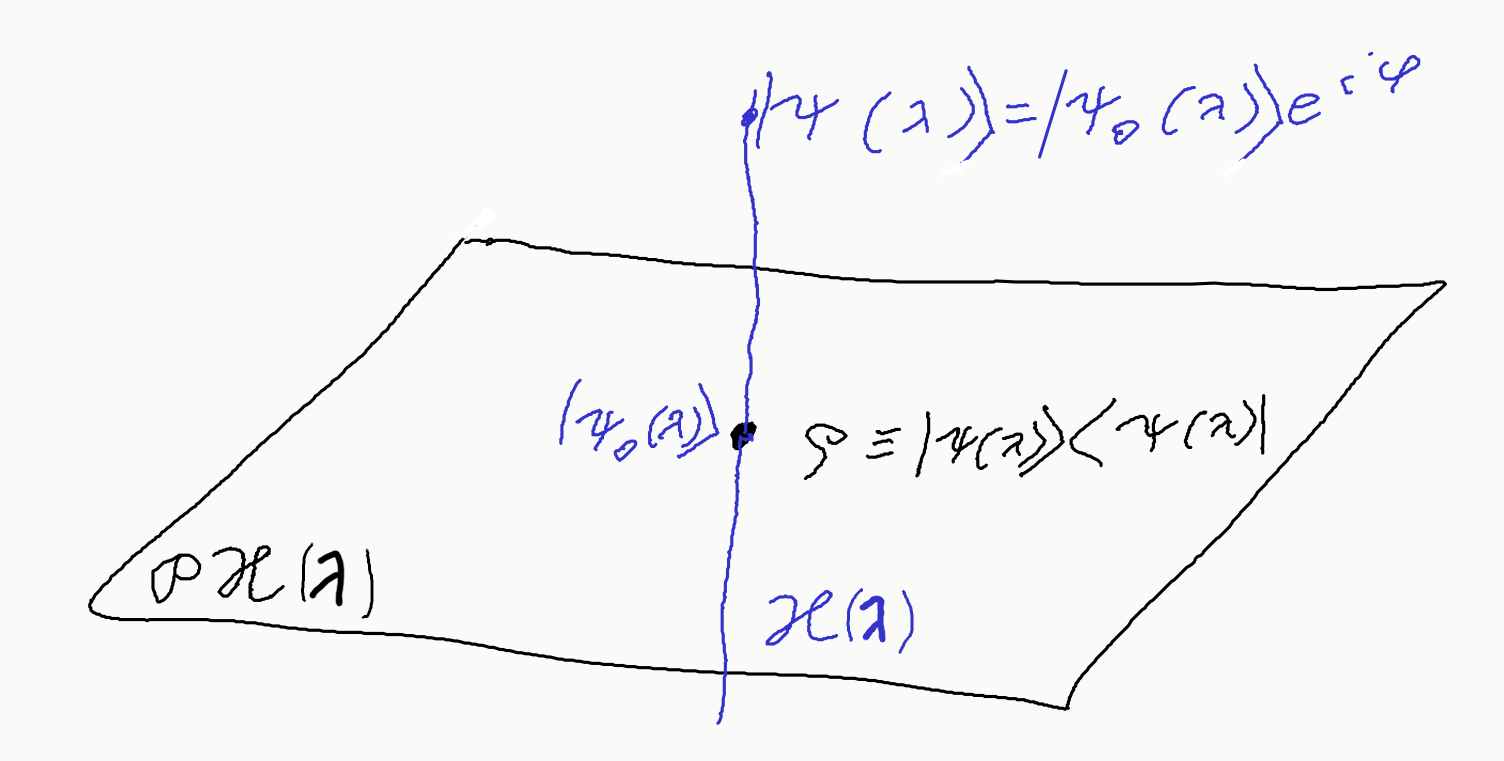 |ψ(λ)⟩=|ψ₀(λ)⟩e^{iφ}
|ψ₀(λ)⟩ ρ≡|ψ(λ)⟩⟨ψ(λ)|
𝒫ℋ(λ)
ℋ(λ)